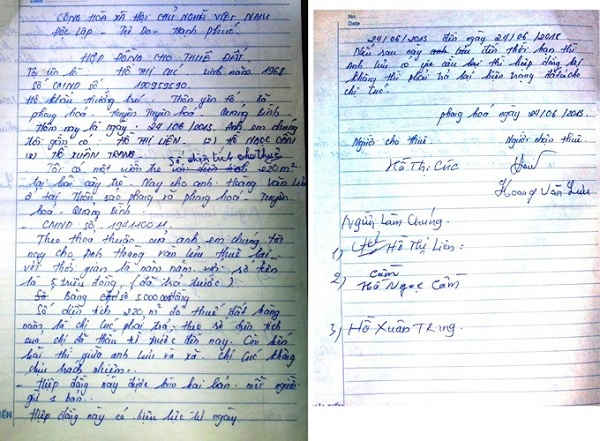 CỘNG HÒA XÃ HỘI CHỦ NGHĨA VIỆT NAM
Độc lập - Tự Do - Hạnh phúc
HIỆP ĐỒNG CHO THUÊ ĐẤT
Tôi tên là HỒ THỊ CÚC sinh năm 1968
Số CMND số
Hộ khẩu thường trú: Thôn yên tố - Xã
phong hoá - Tuyên hoá - Quảng bình
Hôm nay là ngày 24/06/2013. Anh em chúng
tôi gồm có: HỒ THỊ LIÊN (2) HỒ NGỌC CẨM
(3) HỒ XUÂN TRUNG. Số diện tích cho thuê
Tôi có một vườn 220m²
Nay cho anh Hoàng Văn Lưu
ở tại thôn xã phong hoá - Tuyên
hoá - Quảng bình
- CMND số
Theo thỏa thuận của anh em chúng tôi
nay cho anh Hoàng văn lưu thuê
với thời gian là năm năm với số tiền
là 5 triệu đồng (đã trả trước)
Bằng số 5.000.000 đồng
Số diện tích 220 m² thuế đất hàng
năm là chị Cúc phải trả, theo số diện tích
của chị đã thầu từ trước đến nay. Còn
thì giữa anh lưu và xã chị Cúc không
chịu trách nhiệm.
- Hiệp đồng này được làm hai bản. mỗi người
giữ 1 bản.
Hiệp đồng này có hiệu lực từ ngày
No.
Date
24/06/2013 đến ngày 24/06/2018
Nếu sau này đến thời hạn thì
anh lưu có yêu cầu thì hiệp đồng lại
không thì phải trả lại hiện trạng đất cho
chị Cúc.
phong hoá ngày 24/06/2013.
Người cho thuê. Người nhận thuê
Hồ Thị Cúc
Hoàng Văn Lưu
Người Làm Chứng.
1) Hồ Thị Liên:
Cẩm
2) Hồ Ngọc Cẩm
3) Hồ Xuân Trung.